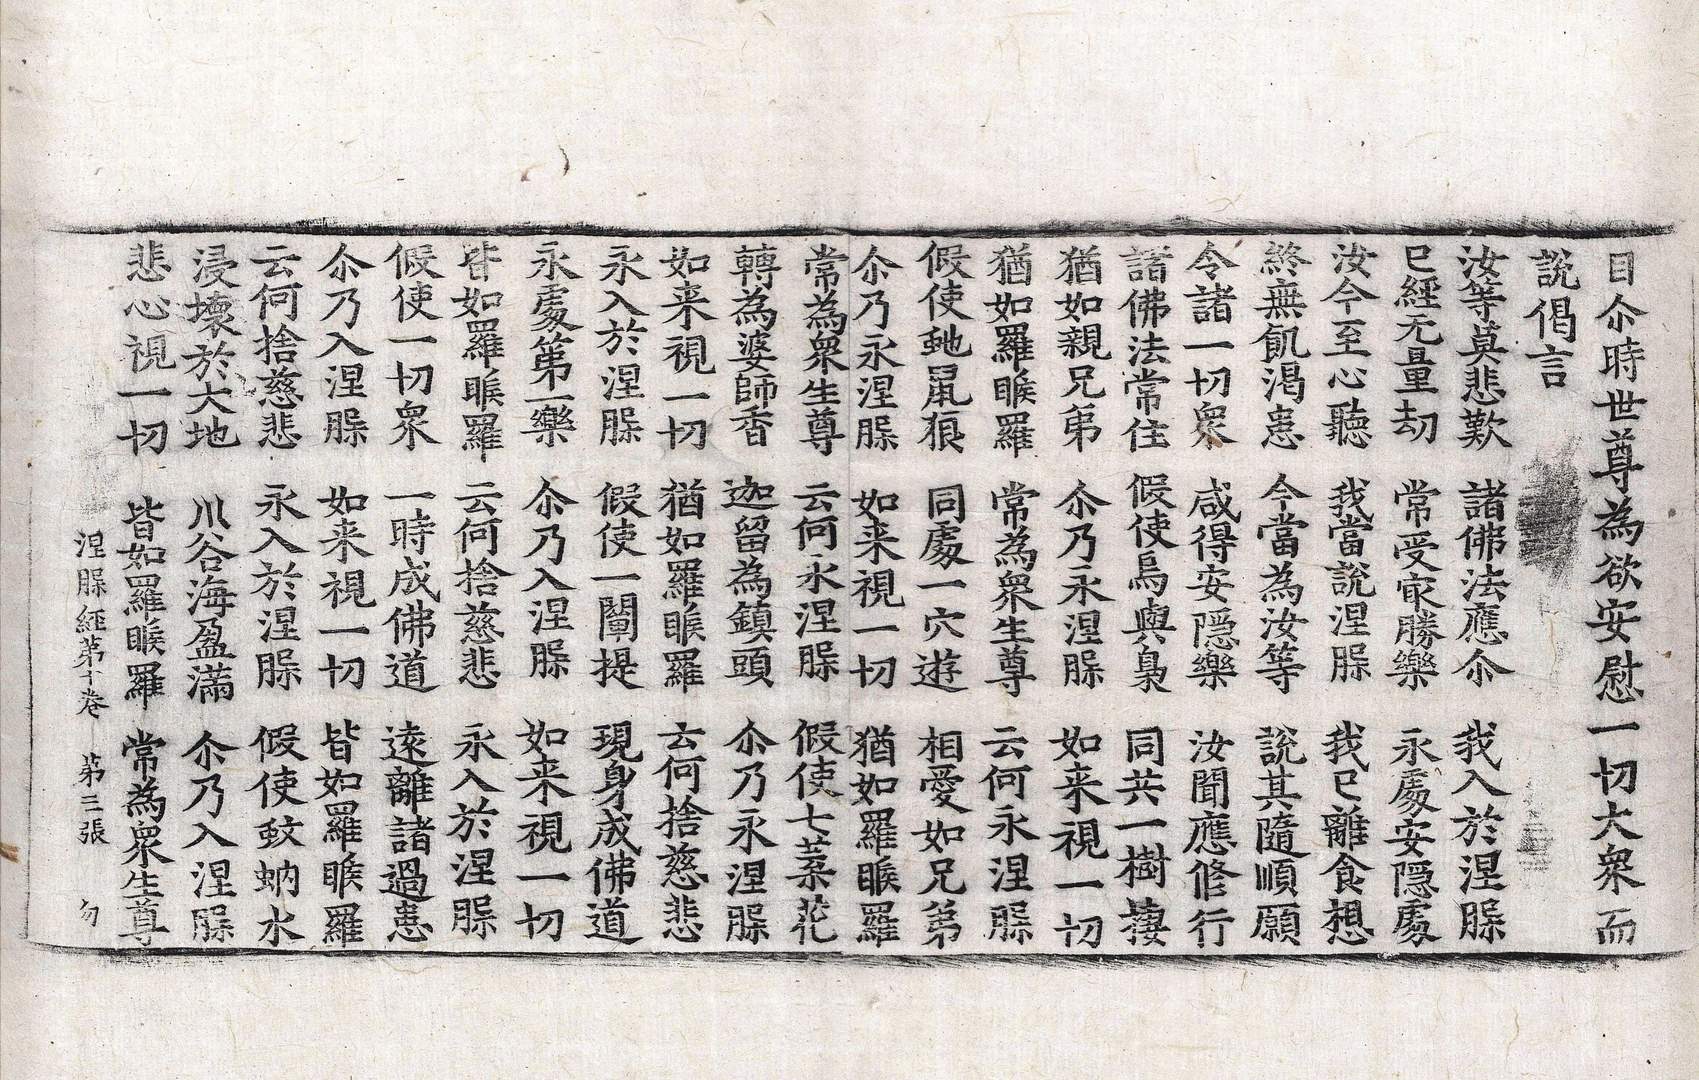 目尒時世尊為欲安慰一切大衆而
説偈言
汝等莫悲歎 諸佛法應尒 我入於涅槃
已經无量劫 常受㝡勝樂 永處安隱處
汝今至心聽 我當説涅槃 我已離食想
終無飢渴患 今當為汝等 説其隨順願
令諸一切衆 咸得安隱樂 汝聞應修行
諸佛法常住 假使烏與梟 同共一樹捿
猶如親兄弟 尒乃永涅槃 如来視一切
猶如羅睺羅 常為衆生尊 云何永涅槃
假使虵鼠狼 同處一穴遊 相愛如兄弟
尒乃永涅槃 如来視一切 猶如羅睺羅
常為衆生尊 云何永涅槃 假使七葉花
轉為婆師香 迦留為鎮頭 尒乃永涅槃
如来視一切 猶如羅睺羅 云何捨慈悲
永入於涅槃 假使一闡提 現身成佛道
永處第一樂 尒乃入涅槃 如来視一切
皆如羅睺羅 云何捨慈悲 永入於涅槃
假使一切衆 一時成佛道 遠離諸過患
尒乃入涅槃 如来視一切 皆如羅睺羅
云何捨慈悲 永入於涅槃 假使蚊蚋水
浸壞於大地 川谷海盈滿 尒乃入涅槃
悲心視一切 皆如羅睺羅 常為衆生尊
涅槃經第十卷 第三張 勿